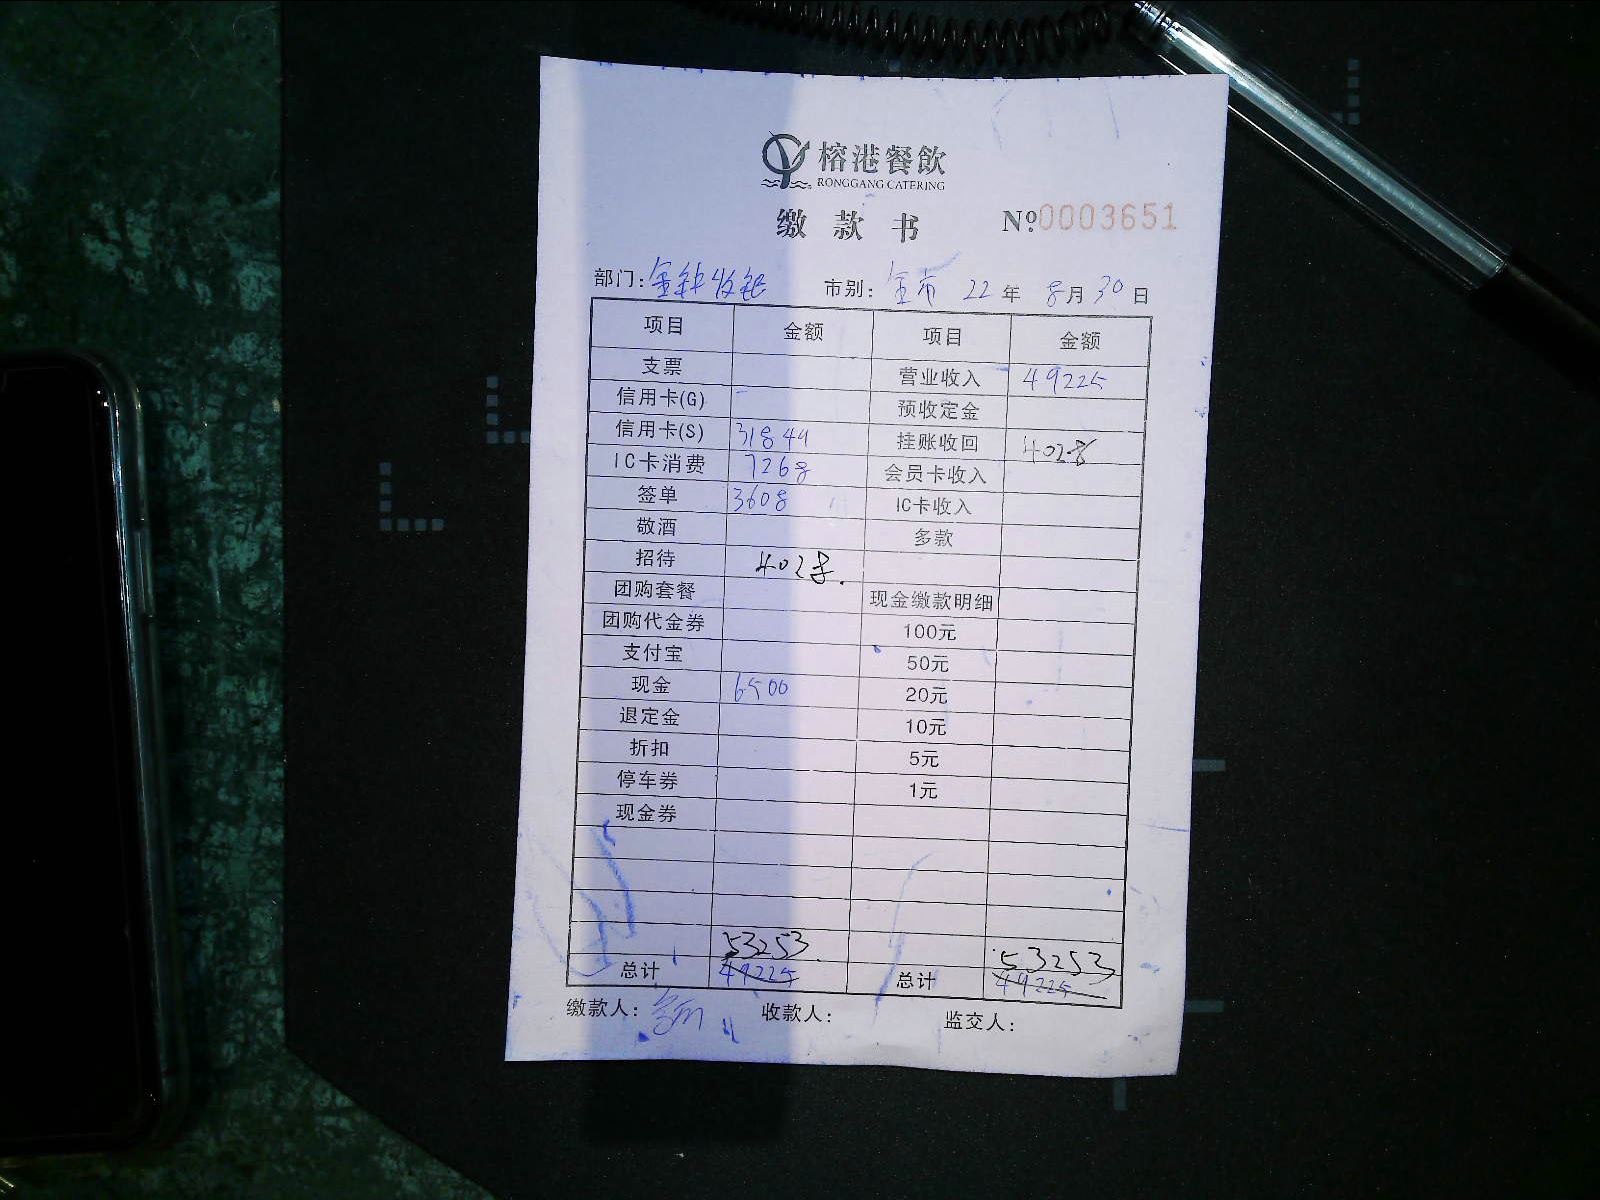 榕港餐飲
RONGGANG CATERING
缴款书 №0003651
部门: 金钟收银 市别: 全市 22年 8月30日
项目 金额 项目 金额
支票 营业收入 49225
信用卡(G) 预收定金
信用卡(S) 31849 挂账收回 4028
IC卡消费 7268 会员卡收入
签单 3608 IC卡收入
敬酒 多款
招待 4028.
团购套餐 现金缴款明细
团购代金券 100元
支付宝 50元
现金 6500 20元
退定金 10元
折扣 5元
停车券 1元
现金券
53253. 53253
总计 49225 总计 49225
缴款人: 收款人: 监交人: